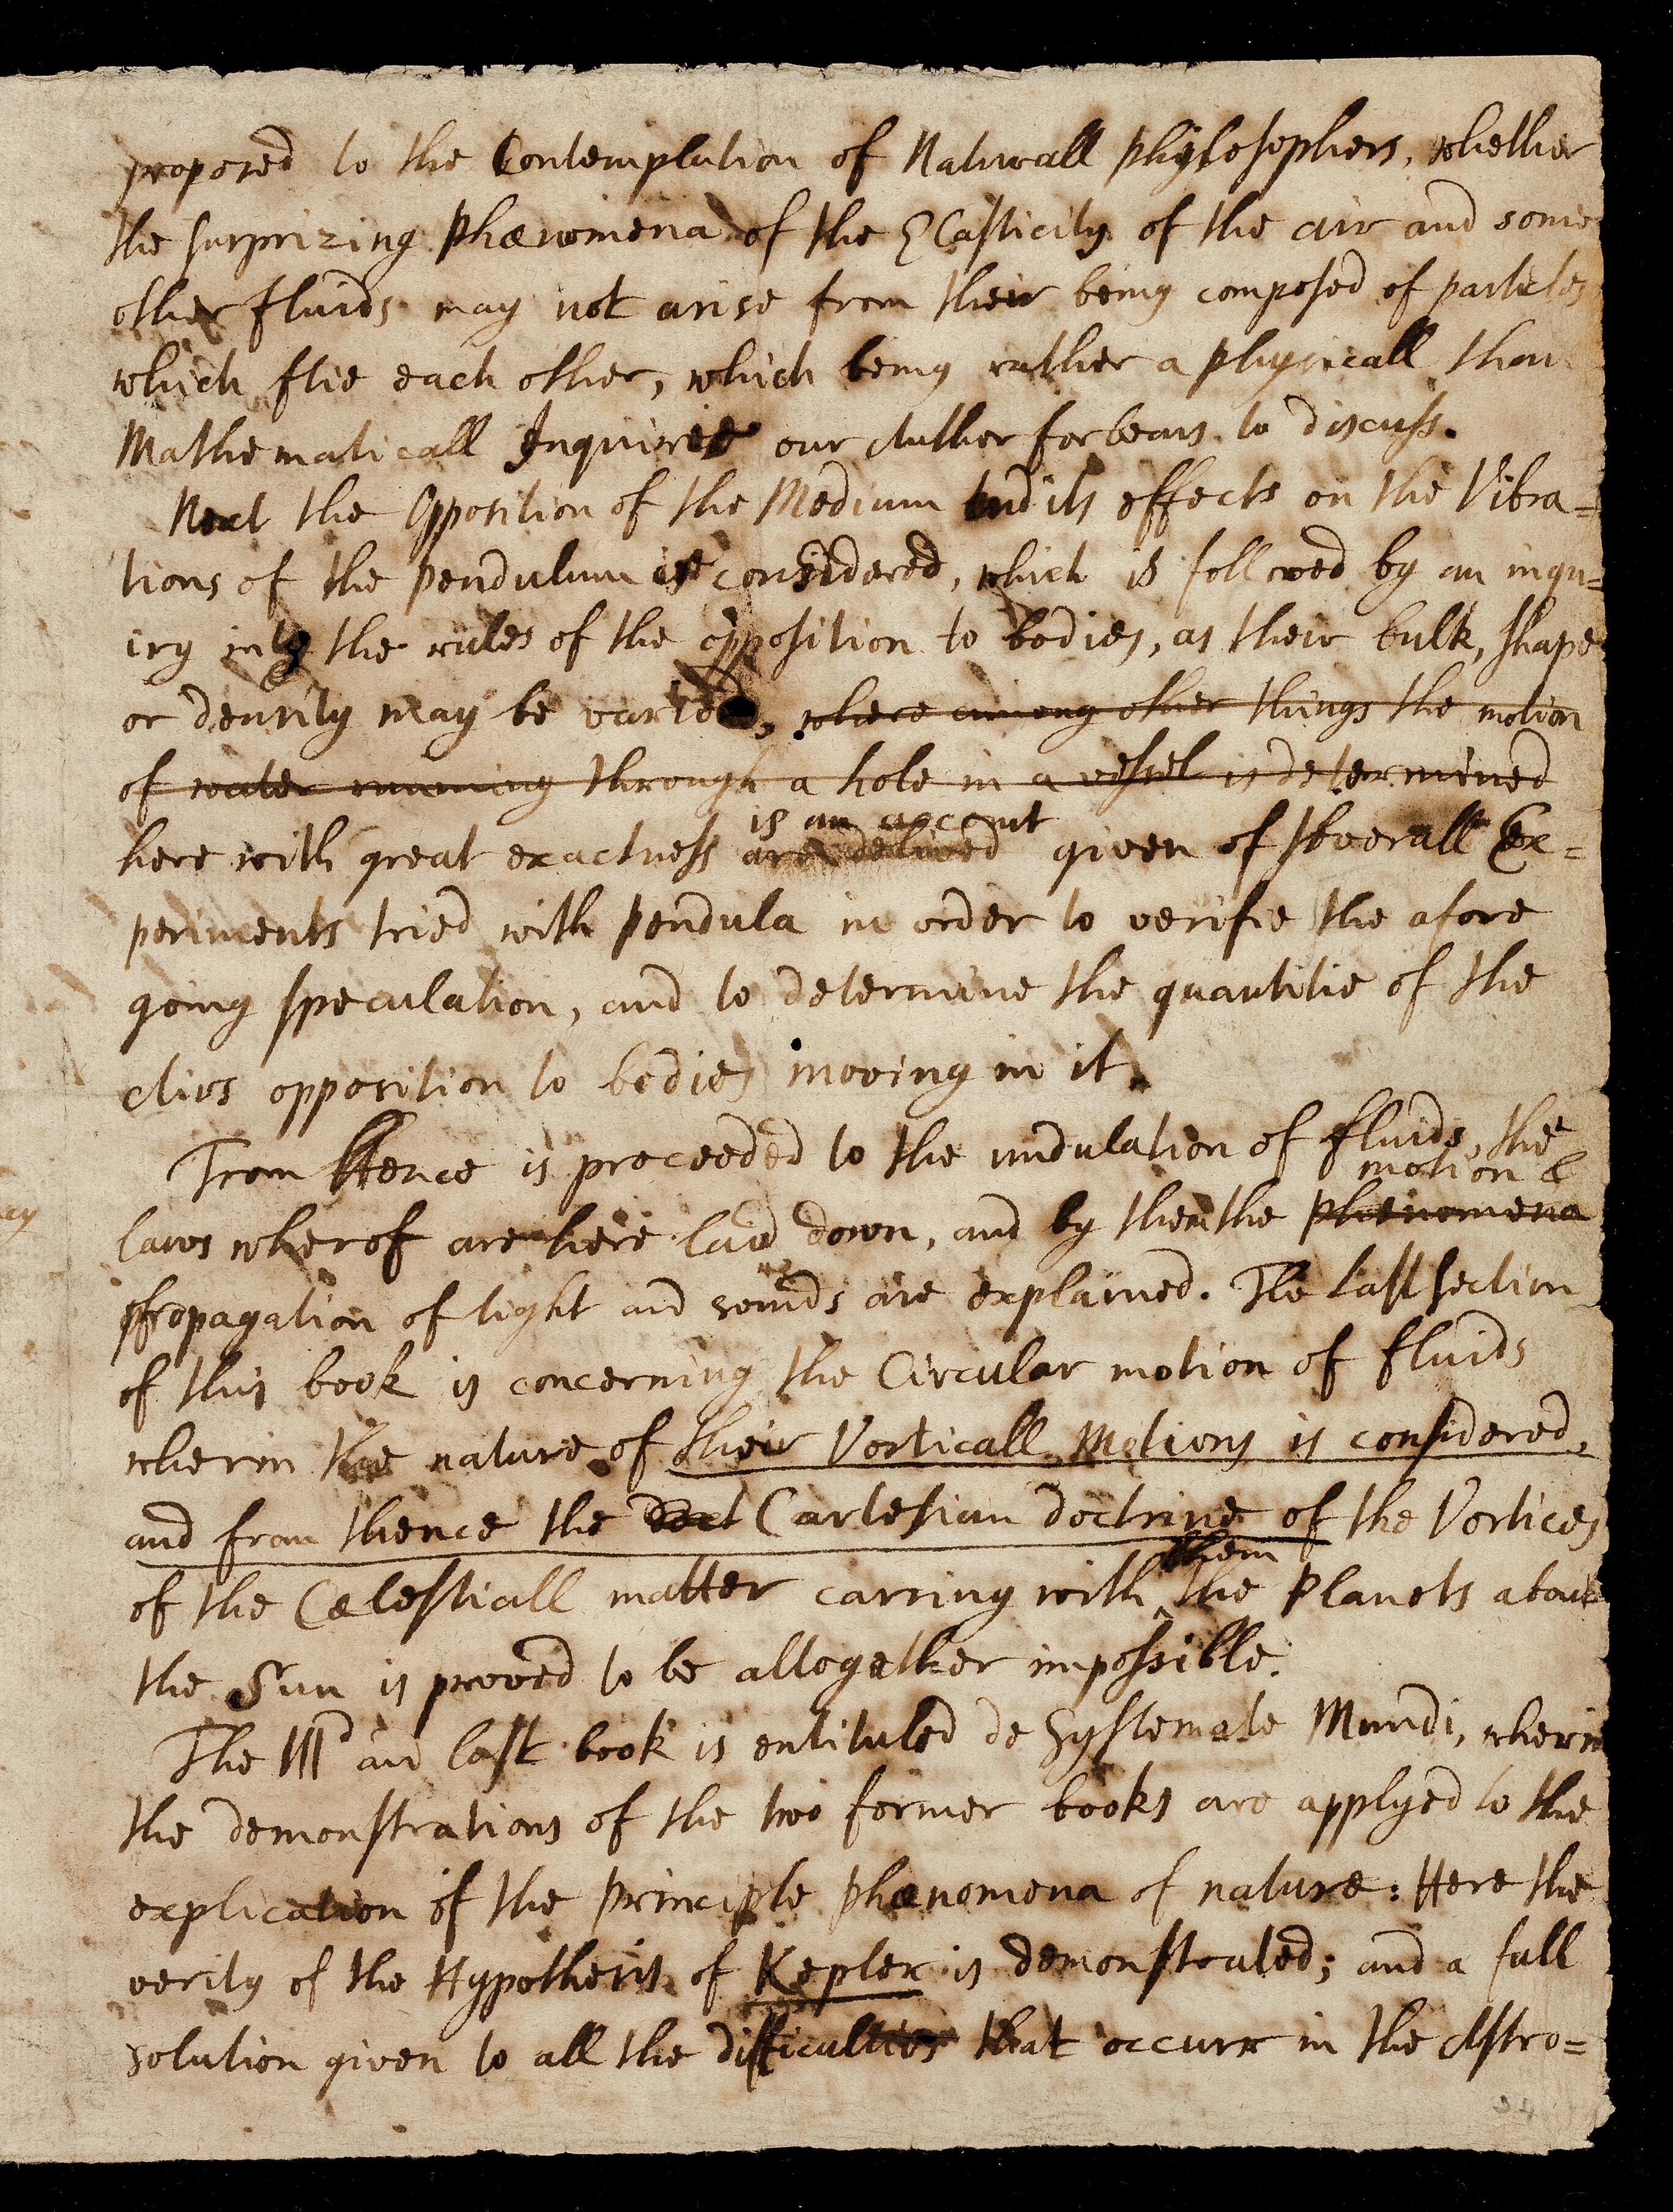 proposed to the Contemplation of Naturall phylosophers, whether
the surprizing Phænomena of the Elasticity of the air and some
other fluids may not arise from their being composed of particles
which flie each other, which being rather a physicall than
Mathematicall Inquirie our Author forbears to discuss.
Next the Opposition of the Medium and its effects on the Vibra=
tions of the pendulum is considered, which is follwed by an inqu=
iry into the rules of the opposition to bodies, as their bulk, shape
or density may be varied, where among other things the motion
of water running through a hole in a vessel is determined
is an account
here with great exactness are given of severall Ex=
periments tried with pendula in order to verifie the afore
going speculation, and to determine the quantitie of the
Airs opposition to bodies moving in it.
From Hence is proceeded to the undulation of fluids, the
motion &
laws wherof are here laid down, and by them the phenomena
propagation of light and sounds are explained. The last section
of this book is concerning the Circular motion of fluids
wherin the nature of their Vorticall Motions is considered,
and from thence the doct Cartesian doctrine of the Vortices
them
of the Cælestiall matter carring with the Planets about
the Sun is proved to be altogether impossible.
The IIId and last book is entituled de Systemate Mundi, wherin
the demonstrations of the two former books are applyed to the
explication of the principle phænomena of nature: Here the
verity of the Hypothesis of Kepler is demonstrated; and a full
solution given to all the difficulties that occurr in the Astro=
24